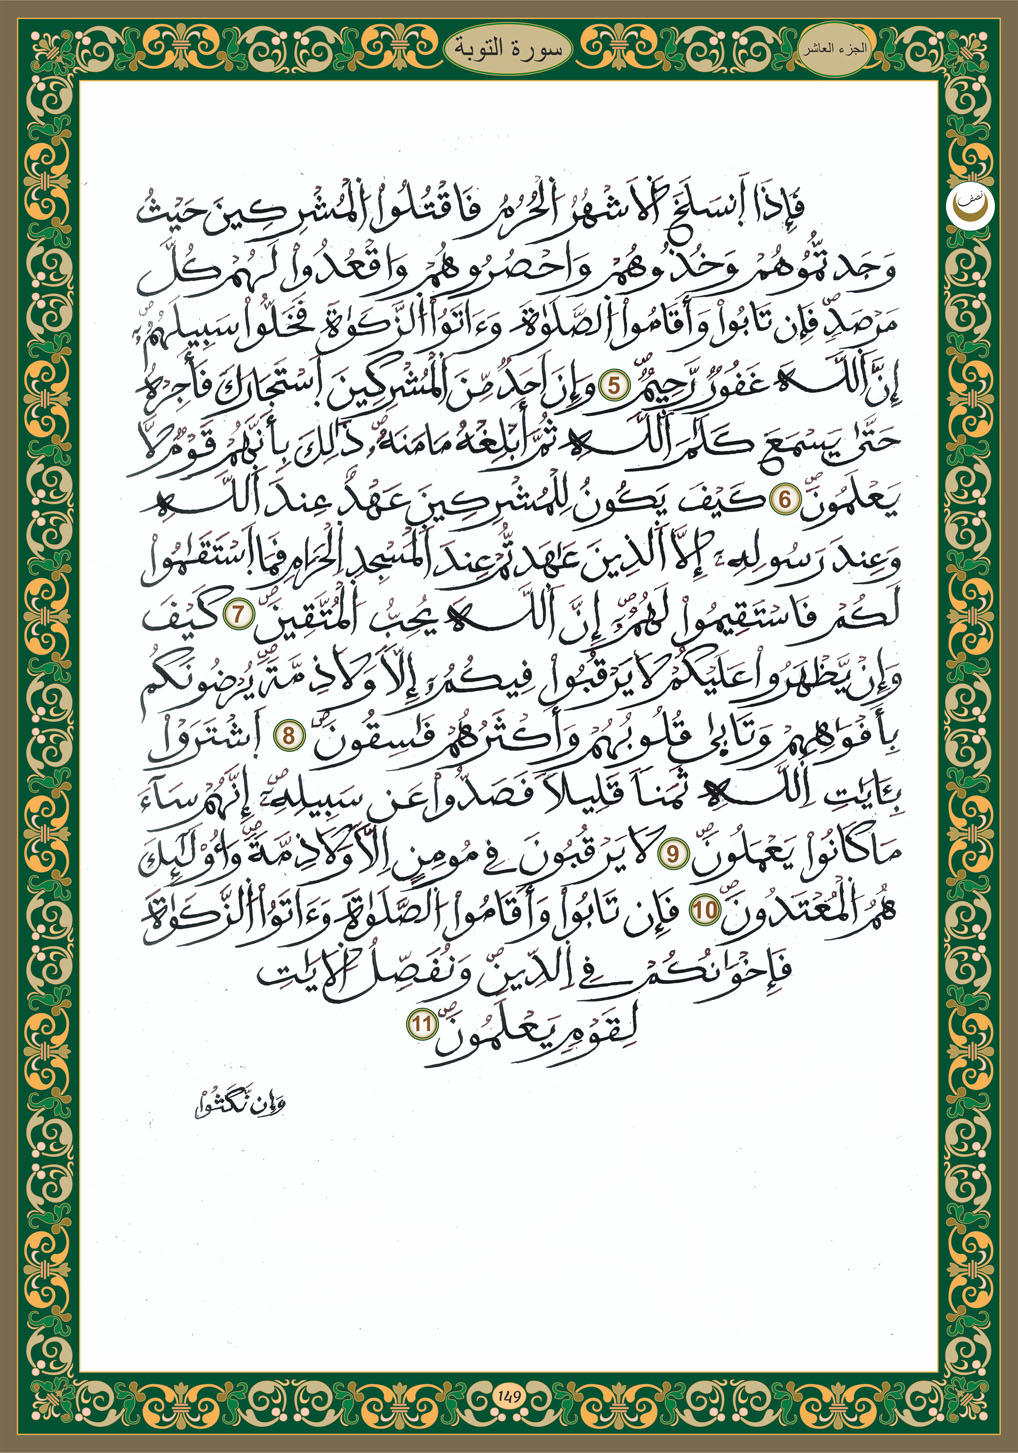 الجزء العاشر
سورة التوبة
نصف
فَإِذَا اَنسَلَخَ اَلَاشْهُرُ اُلْحُرُمُ فَاقْتُلُواْ اُلْمُشْرِكِينَ حَيْثُ
وَجَدتُّمُوهُمْ وَخُذُوهُمْ وَاحْصُرُوهُمْ وَاقْعُدُواْ لَهُمْ كُلَّ
مَرْصَدٖ فَإِن تَابُواْ وَأَقَامُواْ اُلصَّلَوٰةَ وَءَاتَوُاْ اُلزَّكَوٰةَ فَخَلُّواْ سَبِيلَهُمُۥٓ
إِنَّ اَللَّهَ غَفُورٞ رَّحِيمٞ 5 وَإِنَ اَحَدٞ مِّنَ اَلْمُشْرِكِينَ اَسْتَجَارَكَ فَأَجِرْهُ
حَتَّىٰ يَسْمَعَ كَلَٰمَ اَللَّهِ ثُمَّ أَبْلِغْهُ مَامَنَهُۥ ذَٰلِكَ بِأَنَّهُمْ قَوْمٞ لَّا
يَعْلَمُونَ 6 كَيْفَ يَكُونُ لِلْمُشْرِكِينَ عَهْدٌ عِندَ اَللَّهِ
وَعِندَ رَسُولِهِۦٓ إِلَّا اَلذِينَ عَٰهَدتُّمْ عِندَ اَلْمَسْجِدِ اِلْحَرَامِ فَمَا اَسْتَقَٰمُواْ
لَكُمْ فَاسْتَقِيمُواْ لَهُمُۥٓ إِنَّ اَللَّهَ يُحِبُّ اُلْمُتَّقِينَ 7 كَيْفَ
وَإِنْ يَّظْهَرُواْ عَلَيْكُمْ لَا يَرْقُبُواْ فِيكُمُۥٓ إِلّاٗ وَلَا ذِمَّةٗ يُرْضُونَكُم
بِأَفْوَٰهِهِمْ وَتَابىٰ قُلُوبُهُمْ وَأَكْثَرُهُمْ فَٰسِقُونَ 8 اَشْتَرَوْاْ
بِـَٔايَٰتِ اِللَّهِ ثَمَناٗ قَلِيلاٗ فَصَدُّواْ عَن سَبِيلِهِۦٓ إِنَّهُمْ سَآءَ
مَا كَانُواْ يَعْمَلُونَ 9 لَا يَرْقُبُونَ فِي مُومِنٍ اِلّاٗ وَلَا ذِمَّةٗ وَأُوْلَٰٓئِكَ
هُمُ اُلْمُعْتَدُونَ 10 فَإِن تَابُواْ وَأَقَامُواْ اُلصَّلَوٰةَ وَءَاتَوُاْ اُلزَّكَوٰةَ
فَإِخْوَٰنُكُمْ فِي اِلدِّينِ وَنُفَصِّلُ اُلَايَٰتِ
لِقَوْمٖ يَعْلَمُونَ 11
وَإِن نَّكَثُواْ
149